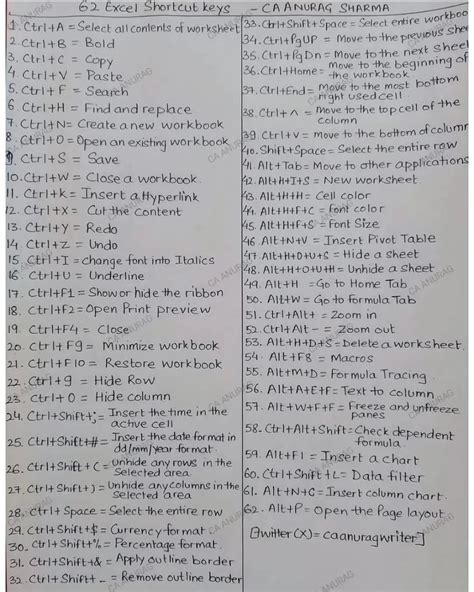 62 Excel Shortcut keys - CA ANURAG SHARMA
1. Ctrl+A = Select all contents of worksheet
2. Ctrl+B = Bold
3. Ctrl+C = Copy
4. Ctrl+V = Paste
5. Ctrl+F = Search
6. Ctrl+H = Find and replace
7. Ctrl+N = Create a new workbook
8. Ctrl+O = Open an existing workbook
9. Ctrl+S = Save
10. Ctrl+W = Close a workbook.
11. Ctrl+K = Insert a Hyperlink
12. Ctrl+X = Cut the content
13. Ctrl+Y = Redo
14. Ctrl+Z = Undo
15. Ctrl+I = change font into Italics
16. Ctrl+U = Underline
17. Ctrl+F1 = Show or hide the ribbon
18. Ctrl+F2 = Open Print preview
19. Ctrl+F4 = Close
20. Ctrl+F9 = Minimize workbook
21. Ctrl+F10 = Restore workbook
22. Ctrl+9 = Hide Row
23. Ctrl+0 = Hide column
24. Ctrl+Shift+; = Insert the time in the
active cell
25. Ctrl+Shift+# = Insert the date format in
dd/mm/year format.
26. Ctrl+Shift+( = Unhide any rows in the
Selected area
27. Ctrl+Shift+) = Unhide any columns in the
Selected area
28. Ctrl+Space = Select the entire row
29. Ctrl+Shift+$ = Currency format
30. Ctrl+Shift+% = Percentage format.
31. Ctrl+Shift+& = Apply outline border
32. Ctrl+Shift+- = Remove outline border
33. Ctrl+Shift+Space = Select entire workboo
34. Ctrl+PgUP = Move to the previous shee
35. Ctrl+PgDn = Move to the next sheet
36. Ctrl+Home = Move to the beginning of
the workbook
37. Ctrl+End = Move to the most bottom
right used cell
38. Ctrl+^ = Move to the top cell of the
column
39. Ctrl+v = move to the bottom of column
40. Shift+Space = Select the entire row
41. Alt+Tab = Move to other applications
42. Alt+H+I+S = New worksheet.
43. Alt+H+H = Cell color
44. Alt+H+F+C = font color
45. Alt+H+F+S = Font Size
46. Alt+N+V = Insert Pivot Table
47. Alt+H+O+U+S = Hide a sheet
48. Alt+H+O+U+H = Unhide a sheet
49. Alt+H = Go to Home Tab
50. Alt+W = Go to formula Tab
51. Ctrl+Alt+ = Zoom in
52. Ctrl+Alt - = Zoom out
53. Alt+H+D+S = Delete a worksheet.
54. Alt+F8 = Macros
55. Alt+M+D = Formula Tracing.
56. Alt+A+E+F = Text to column
57. Alt+W+F+F = Freeze and unfreeze
panes
58. Ctrl+Alt+Shift = Check dependent
formula.
59. Alt+F1 = Insert a chart
60. Ctrl+Shift+L = Data filter
61. Alt+N+C = Insert column chart.
62. Alt+P = Open the Page layout.
[twitter(X) = caanuragwriter]